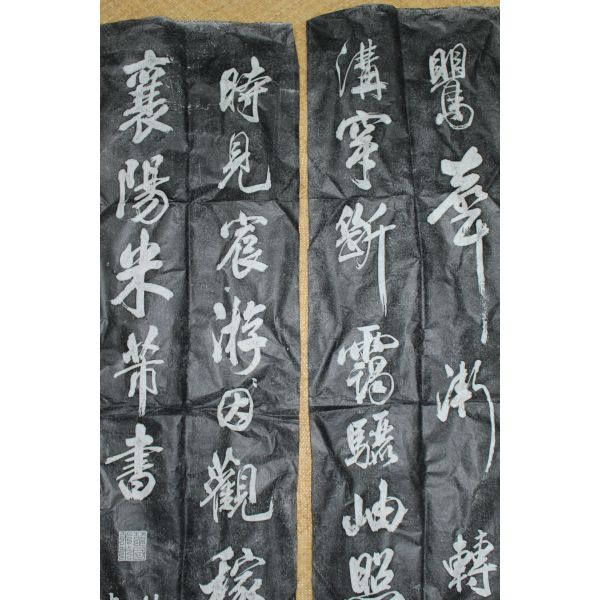 鸎聲漸轉
溝穿斷靄驪岫照
時見宸游因觀稼
襄陽米芾書